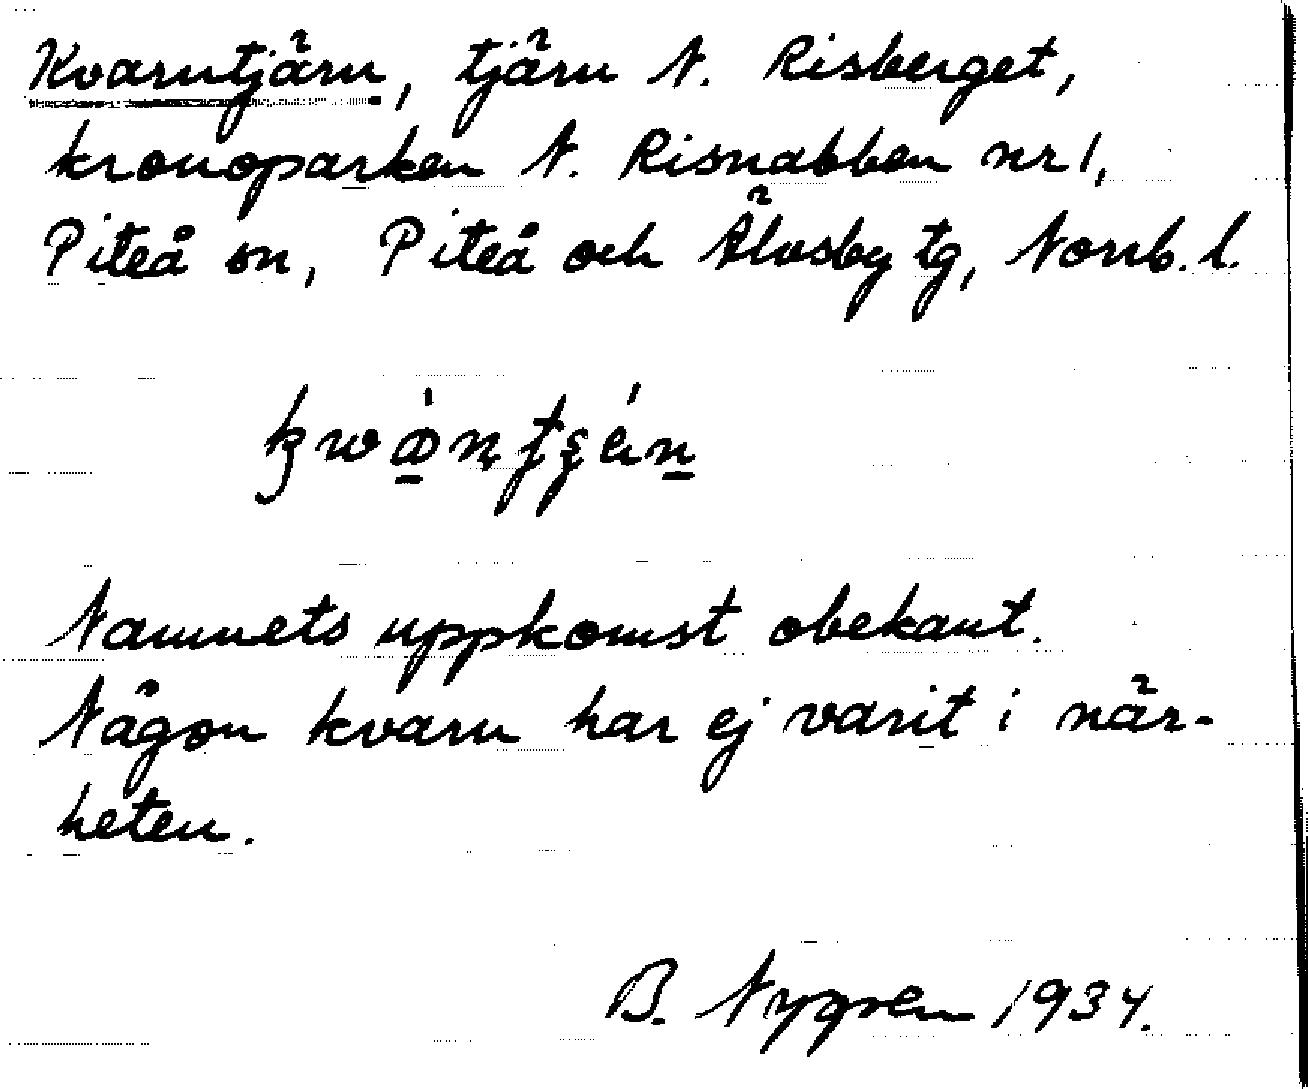 Kvarntjärn, tjärn N. Risberget,
kronoparken N. Risnabben nr 1,
Piteå sn, Piteå och Älvsby tg, Norrb. l.
Namnets uppkomst obekant.
Någon kvarn har ej varit i när-
heten.
B. Nygren 1934.